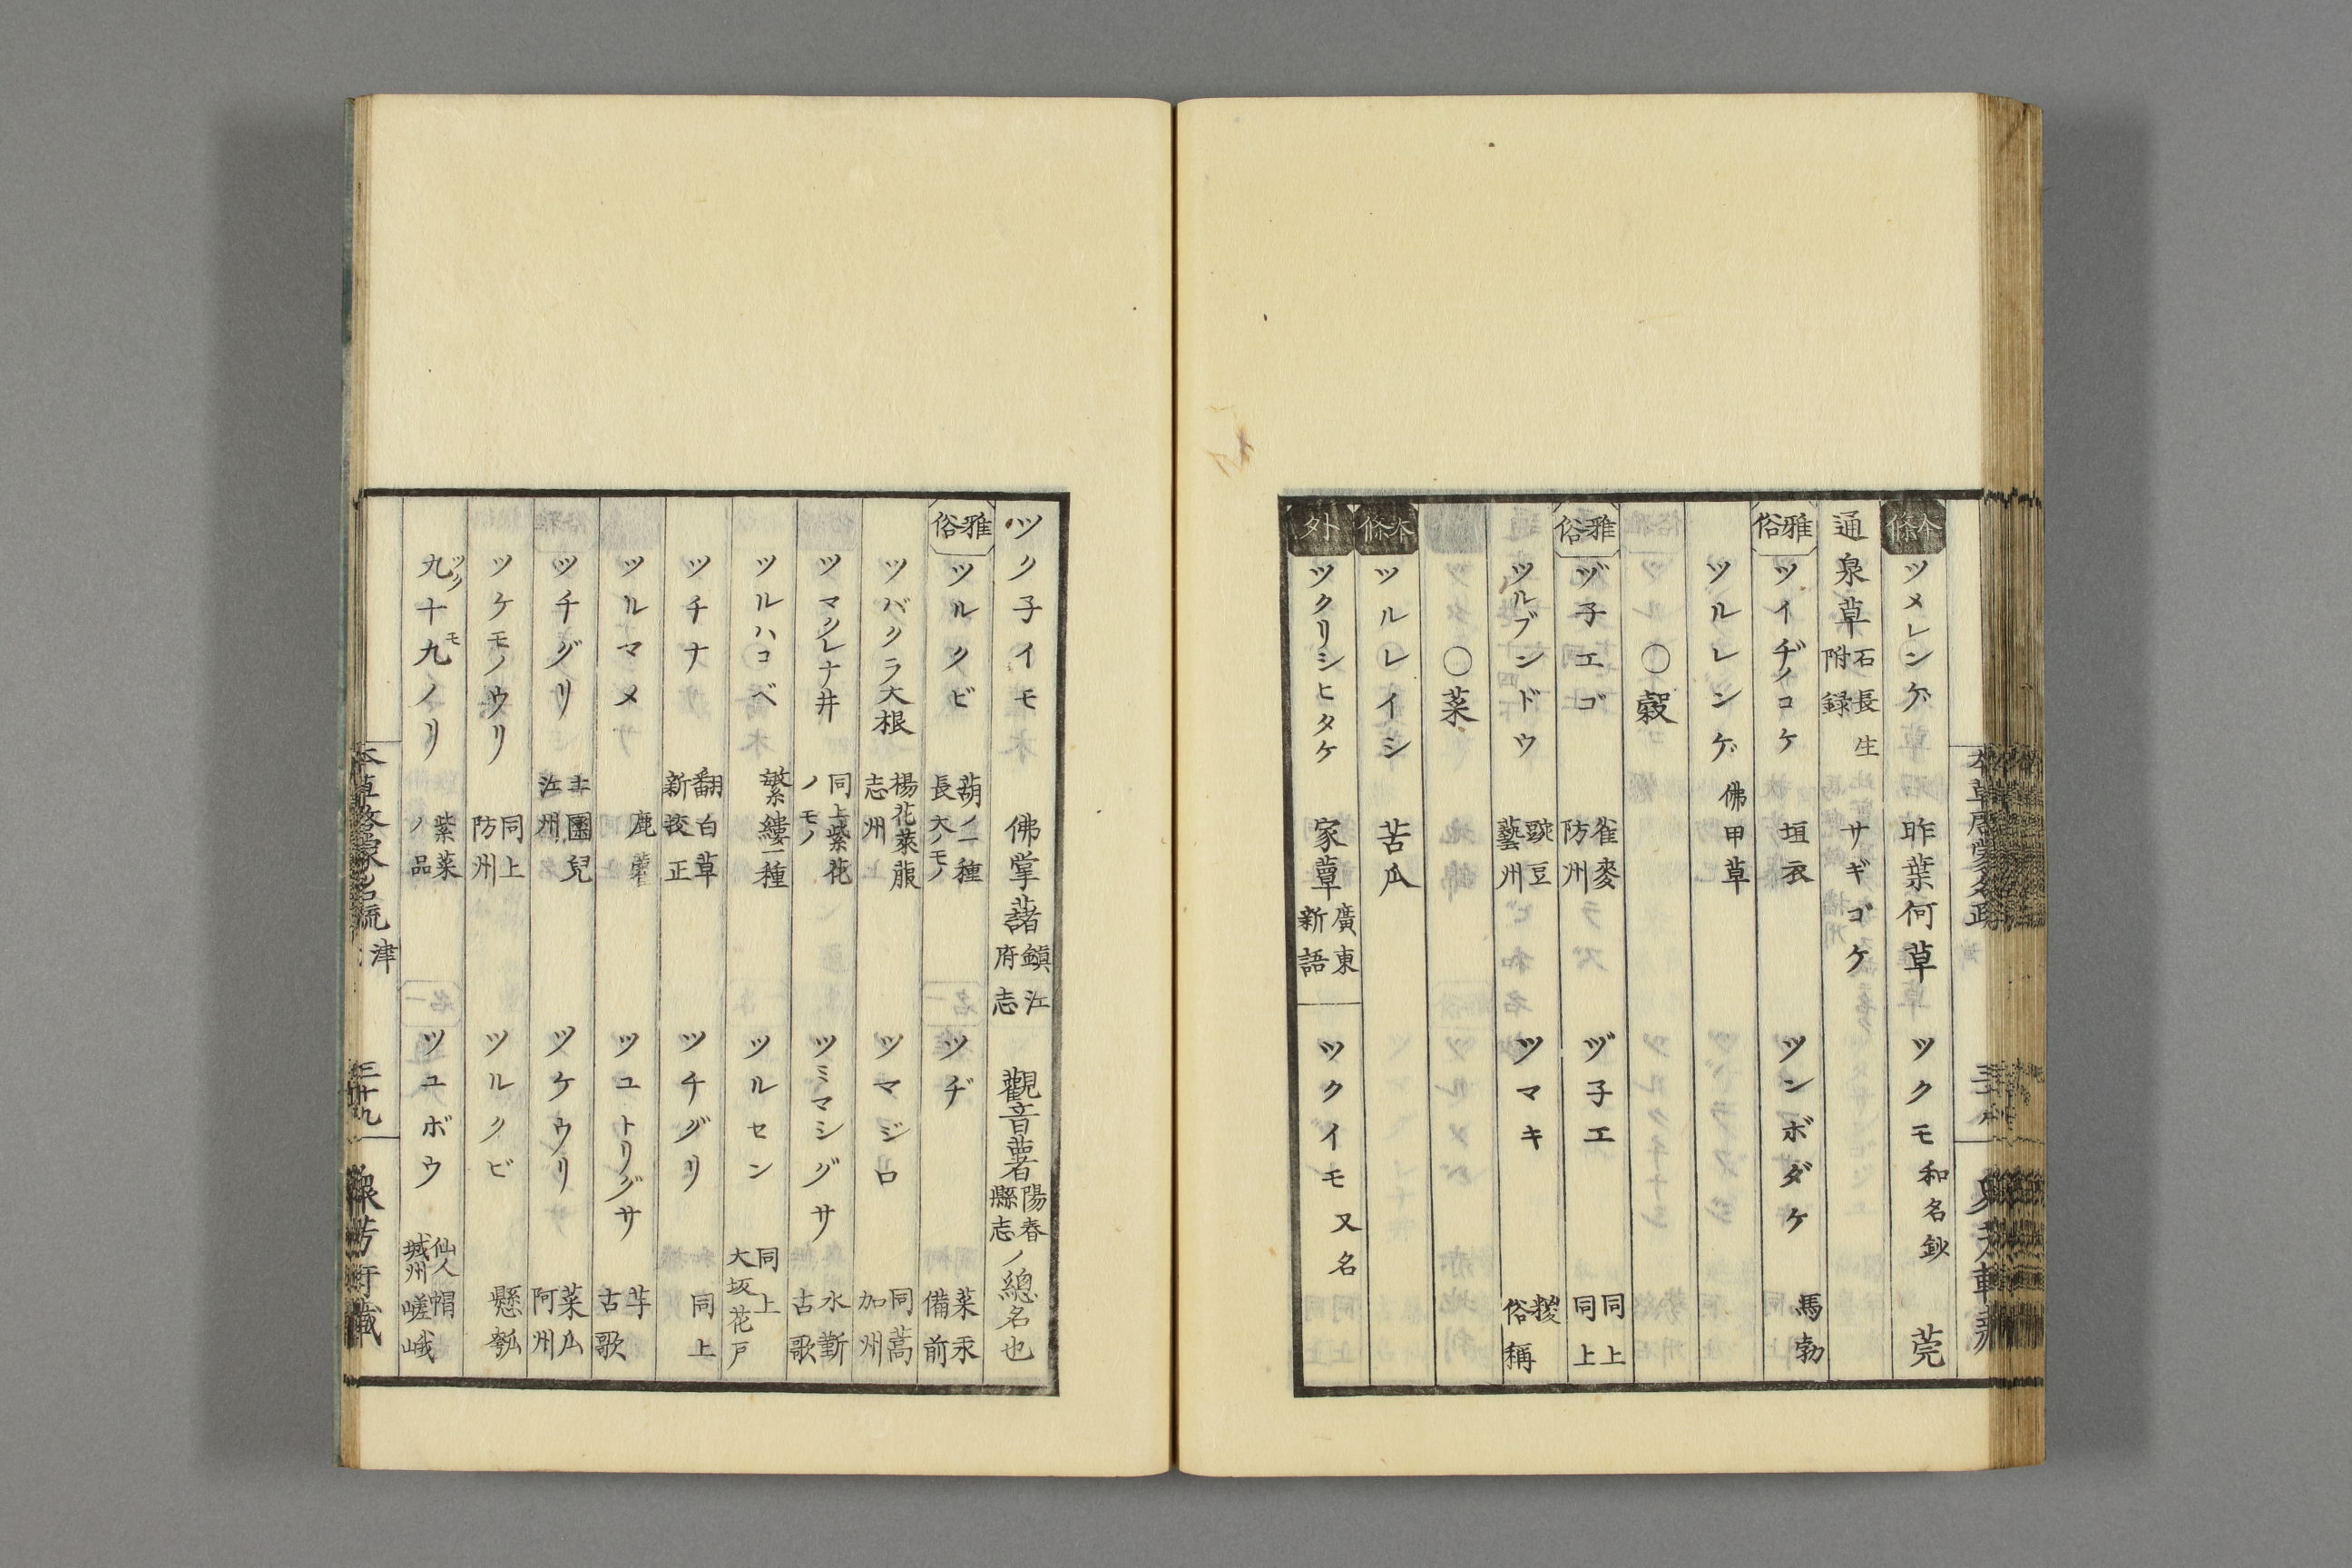 本條 ツメレンゲ 昨葉何草 ツクモ 和名鈔 莞
通泉草 石長生附録 サギゴケ
雅俗 ツイヂノコケ 垣衣 ツンボダケ 馬勃
ツルレンゲ 佛甲草
〇穀
雅俗 ヅ子エゴ 雀麥 防州 ヅ子エ 同上 同上
ツルブンドウ 豌豆 藝州 ツマキ 稷 俗稱
〇菜
本條 ツルレイシ 苦瓜
外 ツクリシヒタケ 家蕈 廣東新語 ツクイモ 又名
ツク子イモ 佛掌藷 鎭江府志 觀音薯 陽春縣志 ノ總名也
雅俗 ツルクビ 葫ノ一種長大ノモノ ツヂ 菜汞 備前
ツバクラ大根 楊花萊菔 志州 ツマジロ 同蒿 加州
ツマクレナ井 同上紫花ノモノ ツミマシグサ 水蘄 古歌
ツルハコベ 繁縷一種 ツルセン 同上 大坂花戸
ツチナ 翻白草 新校正 ツチグリ 同上
ツルマメ 鹿藿 ツユトリグサ 芋 古歌
ツチグリ 土團兒 江州 ツケウリ 菜瓜 阿州
ツケモノウリ 同上 防州 ツルクビ 懸瓠
九十九ノリ ツクモ 紫菜ノ品 ツユボウ 仙人帽 城州嵯峨
津
三十九